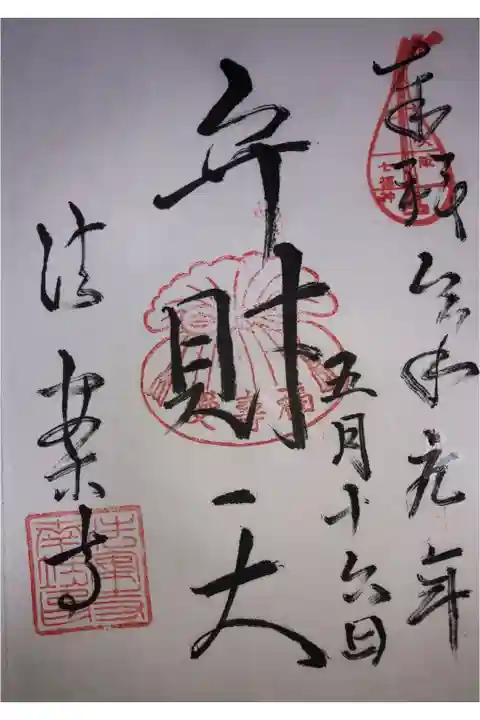 奉拝 令和元年
五月十六日
弁財天
法楽寺
七福神